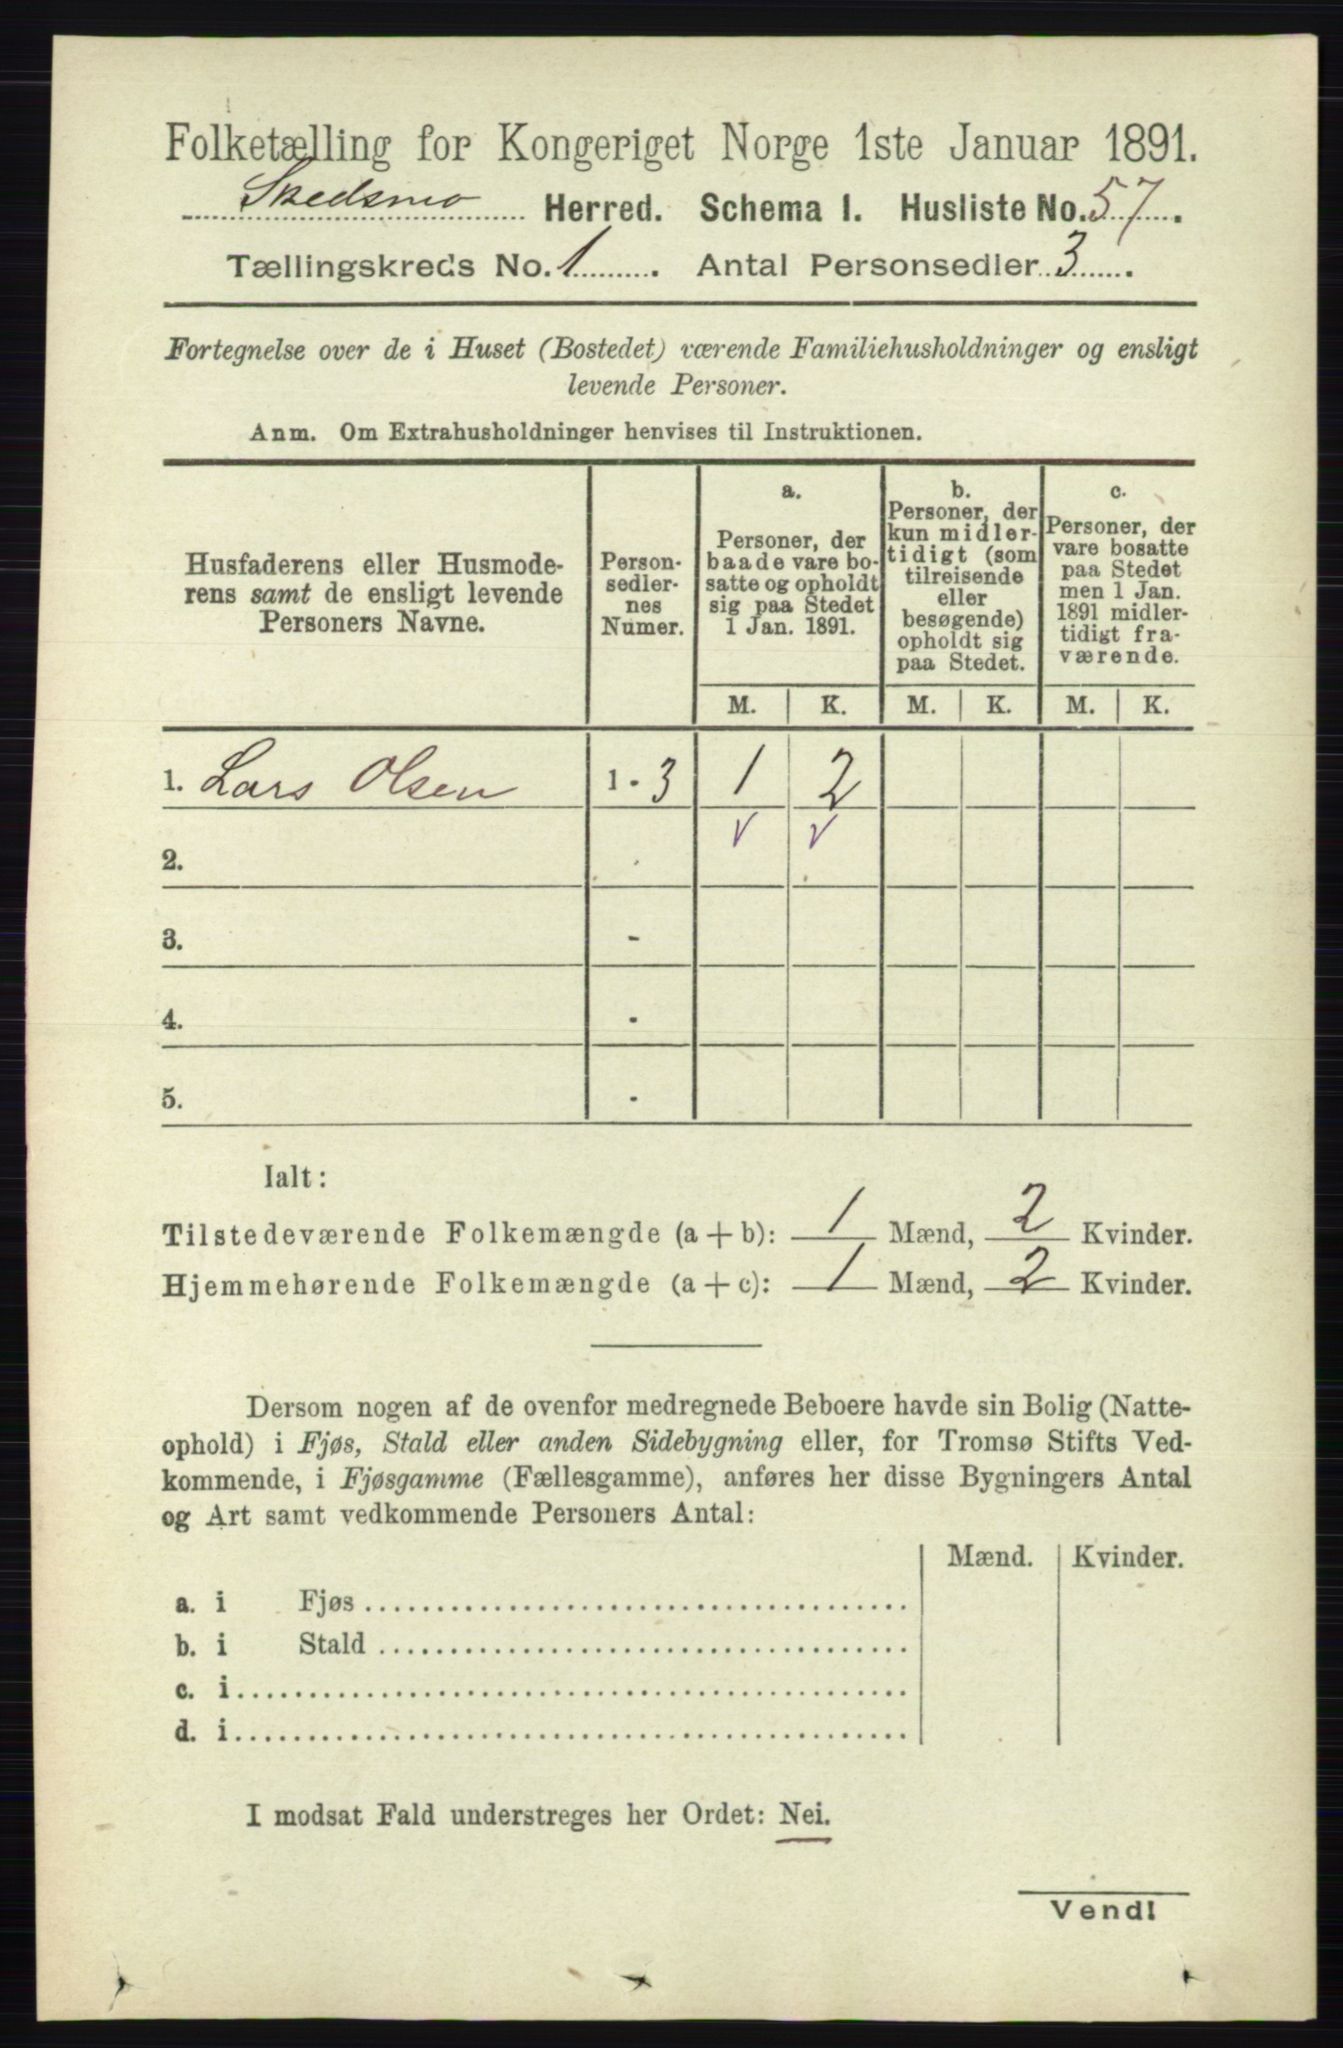 Folketælling for Kongeriget Norge 1ste Januar 1891.
Skedsmo Herred. Schema I. Husliste No. 57.
Tællingskreds No. 1. Antal Personsedler 3.
Fortegnelse over de i Huset (Bostedet) værende Familiehusholdninger og ensligt
levende Personer.
Anm. Om Extrahusholdninger henvises til Instruktionen.
Husfaderens eller Husmode-
rens samt de ensligt levende
Personers Navne.
Person-
sedler-
nes
Numer.
a.
Personer, der
baade vare bo-
satte og opholdt
sig paa Stedet
1 Jan. 1891.
b.
Personer, der
kun midler-
tidigt (som
tilreisende
eller
besøgende)
opholdt sig
paa Stedet.
c.
Personer, der
vare bosatte
paa Stedet
men 1 Jan.
1891 midler-
tidigt fra-
værende.
M. K. M. K. M. K.
1. Lars Olsen 1 - 3 1 2
v v
2.
3. -
4. -
5. -
Ialt:
Tilstedeværende Folkemængde (a + b): 1 Mænd, 2 Kvinder.
Hjemmehørende Folkemængde (a + c): 1 Mænd, 2 Kvinder.
Dersom nogen af de ovenfor medregnede Beboere havde sin Bolig (Natte-
ophold) i Fjøs, Stald eller anden Sidebygning eller, for Tromsø Stifts Ved-
kommende, i Fjøsgamme (Fællesgamme), anføres her disse Bygningers Antal
og Art samt vedkommende Personers Antal:
Mænd. Kvinder.
a. i Fjøs
b. i Stald
c. i
d. i
I modsat Fald understreges her Ordet: Nei.
Vend!